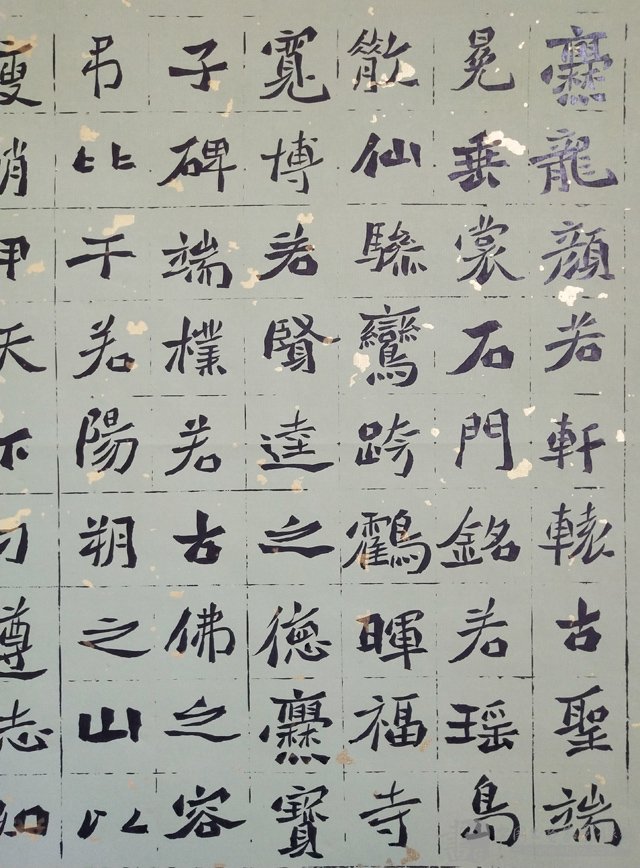 爨龍顔若軒轅古聖端
冕垂裳石門銘若瑶島
散仙驂鸞跨鶴暉福寺
寬博若賢逹之德爨寶
子碑端樸若古佛之容
弔比干若陽朔之山以
瘦峭甲天下刁遵志如